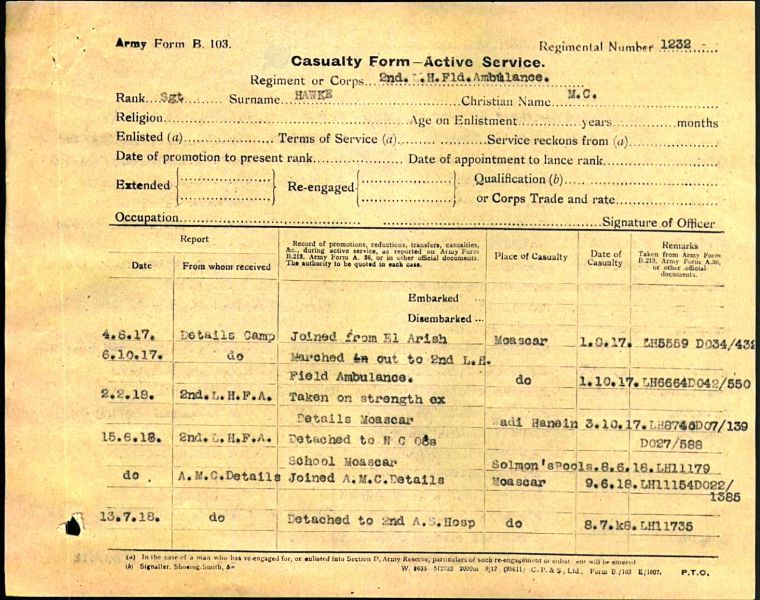 Army Form B. 103.
Regimental Number 1232
Casualty Form—Active Service.
Regiment or Corps 2nd. L.H.Fld.Ambulance.
Rank Sgt Surname HAWKE Christian Name M.C.
Religion Age on Enlistment years months
Enlisted (a) Terms of Service (a) Service reckons from (a)
Date of promotion to present rank Date of appointment to lance rank
Extended Re-engaged Qualification (b)
or Corps Trade and rate
Occupation Signature of Officer
Report
Date From whom received
Record of promotions, reductions, transfers, casualties, &c., during active service, as reported on Army Form B.213, Army Form A. 36, or in other official documents. The authority to be quoted in each case.
Place of Casualty
Date of Casualty
Remarks
Taken from Army Form B.213, Army Form A.36, or other official documents.
Embarked
Disembarked
Details Camp Joined from El Arish Moascar LH5559 D034/432
6.10.17. do Marched in out to 2nd L.H.
Field Ambulance. do 1.10.17. LH6664D042/550
2.2.18. 2nd.L.H.F.A. Taken on strength ex
Details Moascar Wadi Hanein 3.10.17. D07/139
15.6.18. 2nd.L.H.F.A. Detached to N C D027/588
School Moascar Solmon'sPools. 8.6.18. LH11179
do A.M.C.Details Joined A.M.C.Details Moascar 9.6.18. LH11154D022/
1385
13.7.18. do Detached to 2nd A.S.Hosp do 8.7.k8. LH11735
(a) In the case of a man who has re-engaged for, or enlisted into Section D, Army Reserve, particulars of such re-engagement or enlistment will be entered
(b) Signaller, Shoeing-Smith, &c
C. P. & S., Ltd., Form B./103 E/1807. P.T.O.